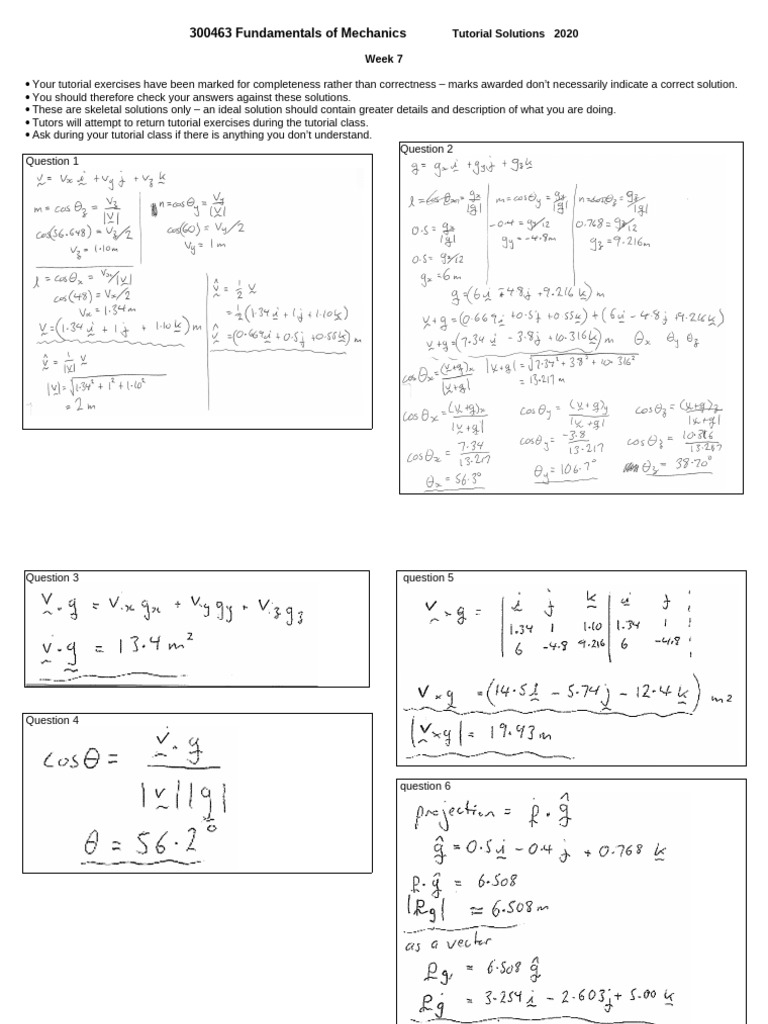 300463 Fundamentals of Mechanics Tutorial Solutions 2020
Week 7
• Your tutorial exercises have been marked for completeness rather than correctness – marks awarded don't necessarily indicate a correct solution.
• You should therefore check your answers against these solutions.
• These are skeletal solutions only – an ideal solution should contain greater details and description of what you are doing.
• Tutors will attempt to return tutorial exercises during the tutorial class.
• Ask during your tutorial class if there is anything you don't understand.
Question 1
v = vx i + vy j + vz k
m = cosθz = vz/|v|
cos(56.648) = vz/2
vz = 1.10m
n = cosθy = vy/|v|
cos(60) = vy/2
vy = 1m
l = cosθx = vx/|v|
cos(48) = vx/2
vx = 1.34m
v = (1.34i + 1j + 1.10k) m
v̂ = 1/|v| v
|v| = √1.34² + 1² + 1.10²
= 2m
v̂ = 1/2 v
= 1/2(1.34i + 1j + 1.10k)
v̂ = (0.669i + 0.5j + 0.55k) m
Question 2
g = gx i + gy j + gz k
l = cosθx = gx/|g|
0.5 = gx/|g|
0.5 = gx/12
gx = 6m
m = cosθy = gy/|g|
-0.4 = gy/12
gy = -4.8m
n = cosθz = gz/|g|
0.768 = gz/12
gz = 9.216m
g = (6i - 4.8j + 9.216k) m
v+g = (0.669i + 0.5j + 0.55k) + (6i - 4.8j + 9.216k)
v+g = (7.34i - 3.8j + 10.316k) m θx θy θz
cosθx = (v+g)x/|v+g| |v+g| = √7.34² + 3.8² + 10.316²
= 13.217m
cosθx = (v+g)x/|v+g|
cosθx = 7.34/13.217
θx = 56.3°
cosθy = (v+g)y/|v+g|
cosθy = -3.8/13.217
θy = 106.7°
cosθz = (v+g)z/|v+g|
cosθz = 10.316/13.217
θz = 38.70°
Question 3
v.g = vx gx + vy gy + vz gz
v.g = 13.4 m²
Question 4
cosθ = v.g/|v||g|
θ = 56.2°
question 5
v×g = | i j k | i j
1.34 1 1.10 | 1.34 1
6 -4.8 9.216 | 6 -4.8
v×g = (14.5i - 5.74j - 12.4k) m2
|v×g| = 19.93m
question 6
projection = p.ĝ
ĝ = 0.5i - 0.4j + 0.768k
p.ĝ = 6.508
|pg| ≈ 6.508m
as a vector
pg = 6.508 ĝ
pg = 3.254i - 2.603j + 5.00k